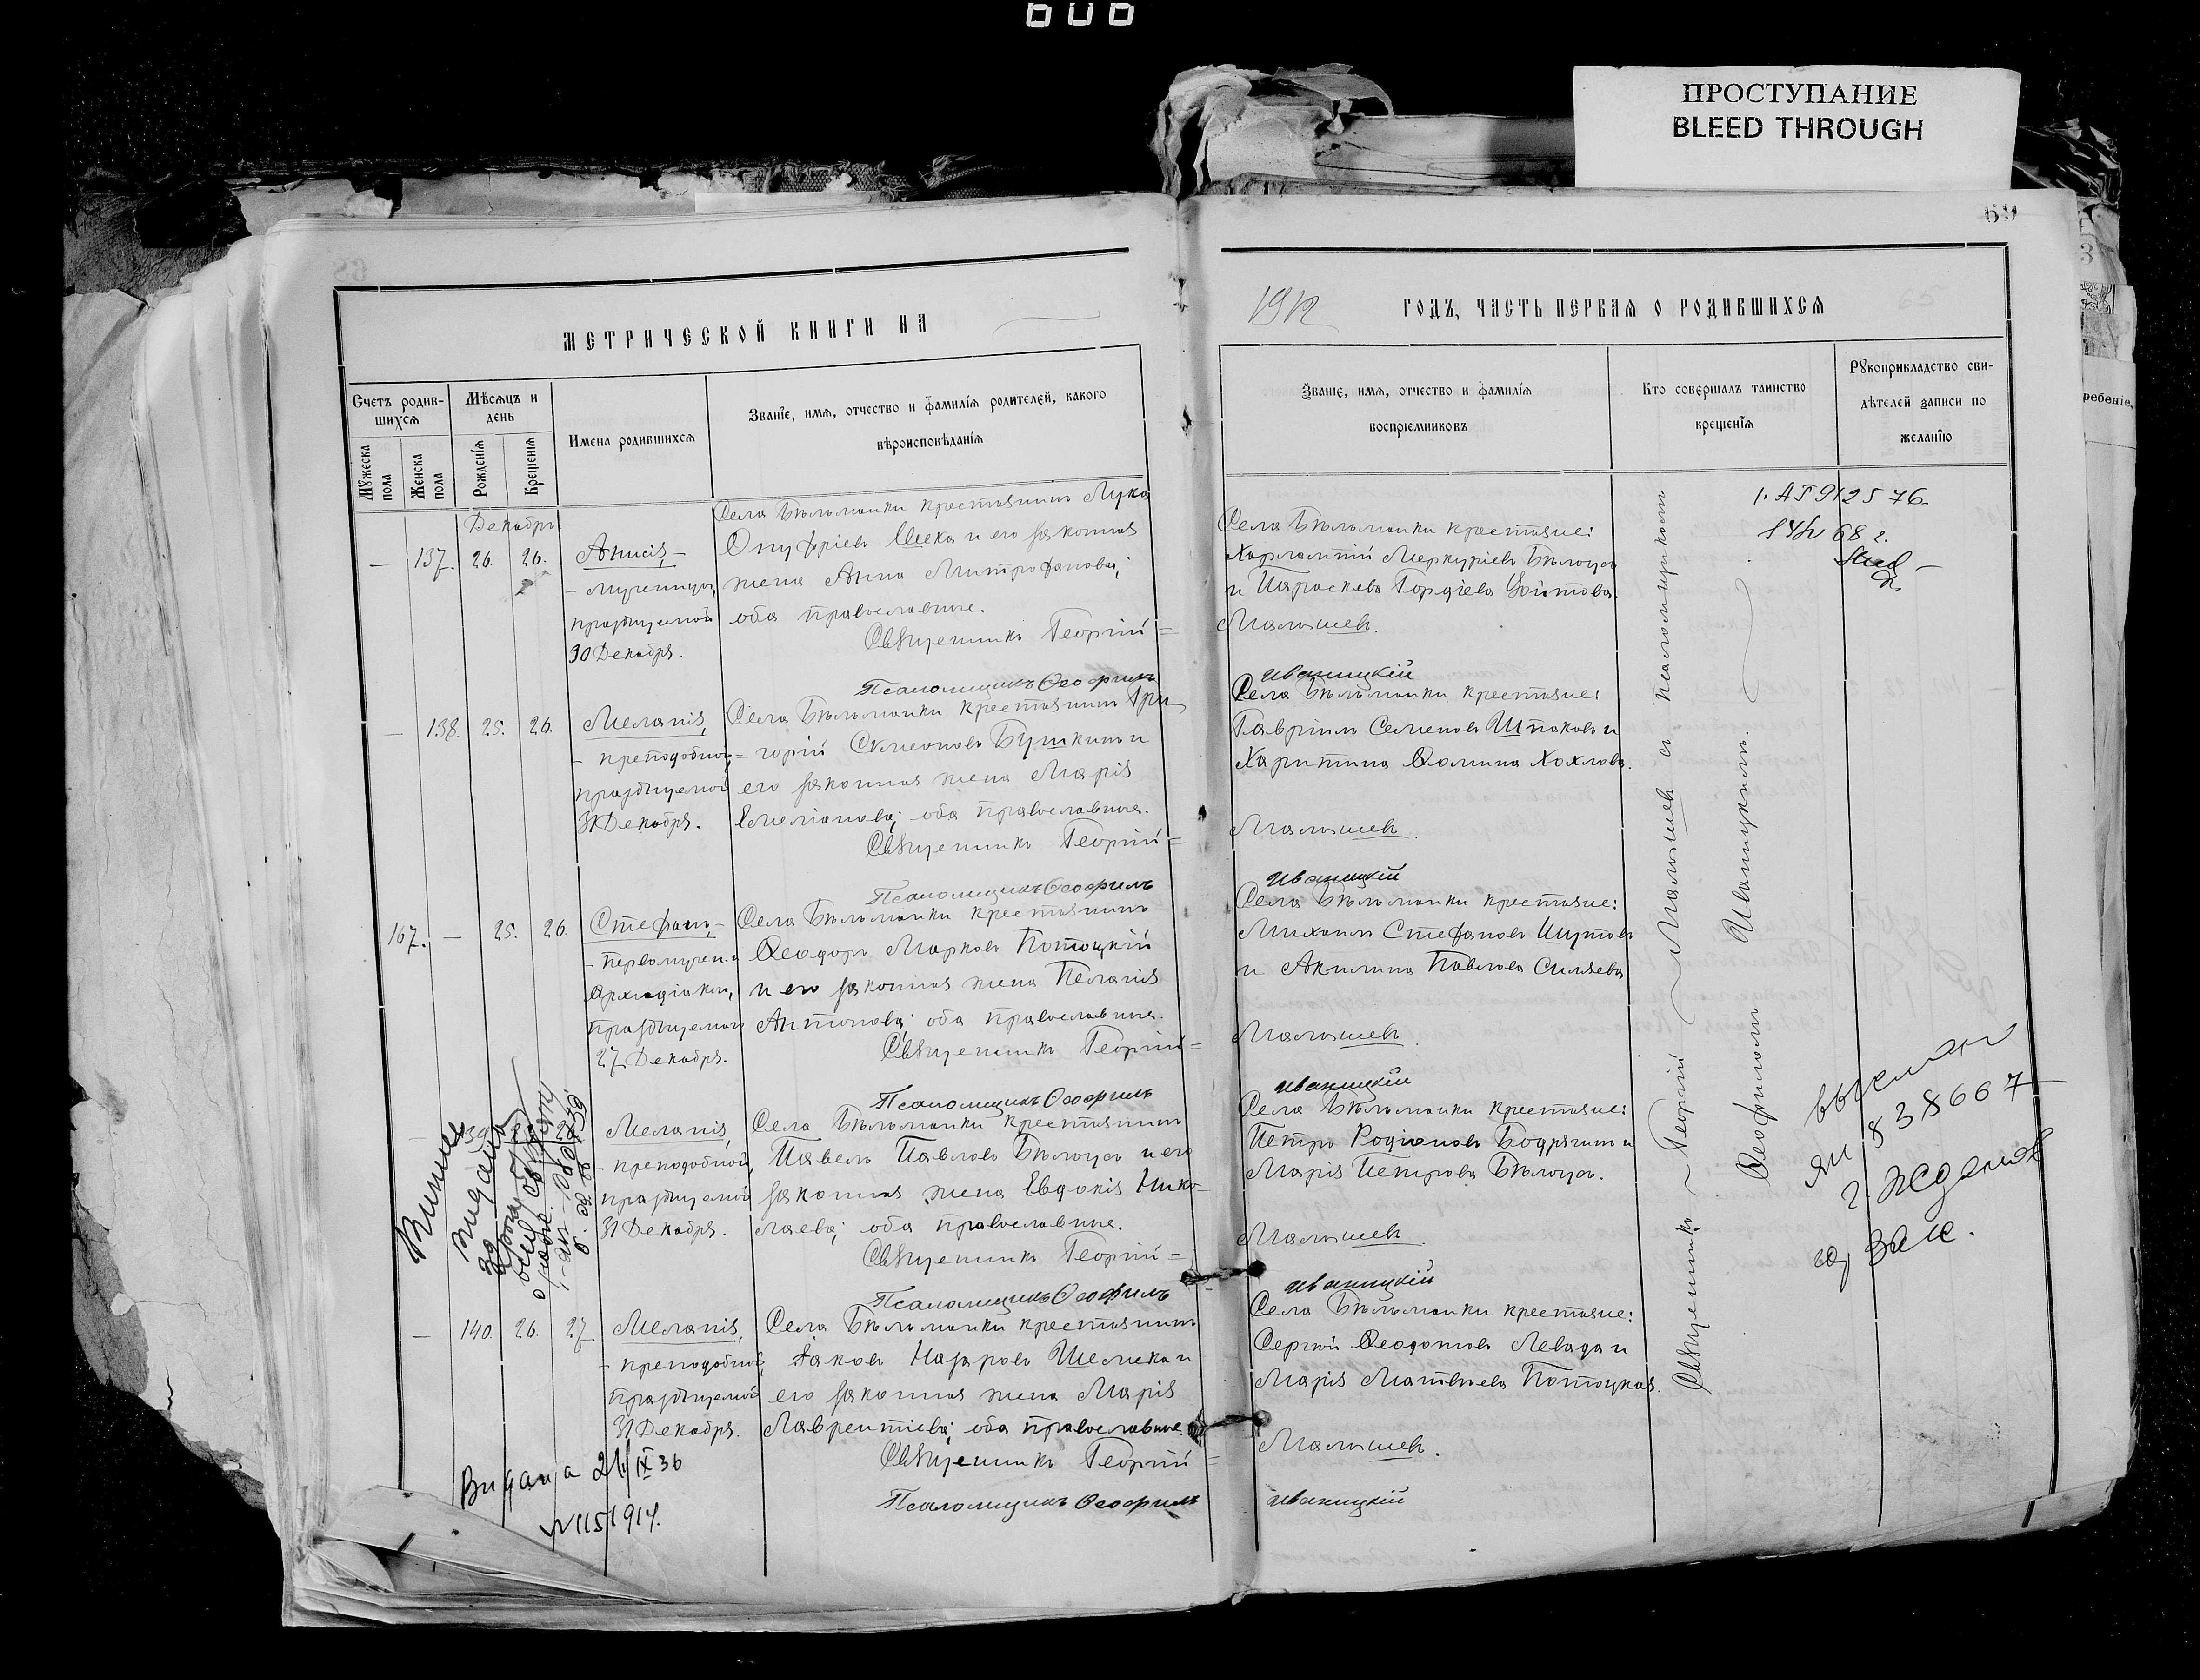 606
ПРОСТУПАНИЕ
BLEED THROUGH
69
МЕТРИЧЕСКОЙ КНИГИ НА
1912
ГОДЪ, ЧАСТЬ ПЕРВАЯ О РОДИВШИХСЯ
Счетъ родив-
шихся
Мѣсяцъ и
день
Мужеска
пола
Женска
пола
Рожденія
Крещенія
Имена родившихся
Званіе, имя, отчество и фамилія родителей, какого
вѣроисповѣданія
Званіе, имя, отчество и фамилія
воспріемниковъ
Кто совершалъ таинство
крещенія
Рукоприкладство сви-
дѣтелей записи по
желанію
ребеніе,
Декабрь
— 137. 26. 26.
Анисія, –
– мученицы,
празднуемой
30 Декабря.
Села Бѣльманки крестьянинъ Лука
Онуфріевъ и его законная
жена Анна Митрофанова;
оба православные.
Священникъ Георгій =
Псаломщикъ Ѳеофилъ
Села Бѣльманки крестьяне:
Харлампій Меркуріевъ Бѣлоусъ
и Параскева Гордіева
Малышевъ.
Иваницкій
— 138. 25. 26.
Меланія,
– преподобной,
празднуемой
31 Декабря.
Села Бѣльманки крестьянинъ Гри-
= горій Симеоновъ Бушкинъ и
его законная жена Марія
Емеліанова; оба православные.
Священникъ Георгій =
Псаломщикъ Ѳеофилъ
Села Бѣльманки крестьяне:
Гавріилъ Семеновъ Шпаковъ и
Харитина Ѳомина Хохлова.
Малышевъ.
Иваницкій
167. — 25. 26.
Стефанъ, –
– первомучен. и
Архидіакона,
празднуемаго
27 Декабря.
Села Бѣльманки крестьянинъ
Ѳеодоръ Марковъ Потоцкій
и его законная жена Пелагія
Антонова; оба православные.
Священникъ Георгій =
Псаломщикъ Ѳеофилъ
Села Бѣльманки крестьяне:
Михаилъ Стефановъ Шутовъ
и Акилина Павлова Силяева
Малышевъ.
Иваницкій
Меланія,
– преподобной,
празднуемой
31 Декабря.
Села Бѣльманки крестьянинъ
Павелъ Павловъ Бѣлоусъ и его
законная жена Евдокія Нико-
лаева; оба православные.
Священникъ Георгій =
Псаломщикъ Ѳеофилъ
Села Бѣльманки крестьяне:
Петръ Родіоновъ Бодрягинъ и
Марія Петрова Бѣлоусъ.
Малышевъ.
Иваницкій
— 140. 26. 27.
Меланія,
– преподобной,
празднуемой
31 Декабря.
Села Бѣльманки крестьянинъ
Іаковъ Назаровъ Шемека и
его законная жена Марія
Лаврентіева; оба православные.
Священникъ Георгій =
Псаломщикъ Ѳеофилъ
Села Бѣльманки крестьяне:
Сергій Ѳеодотовъ Левада и
Марія Матвѣева Потоцкая.
Малышевъ.
Иваницкій
Священникъ Георгій Малышевъ съ Псаломщикомъ
Ѳеофиломъ Иваницкимъ.
838667
г. Жданов
загс.